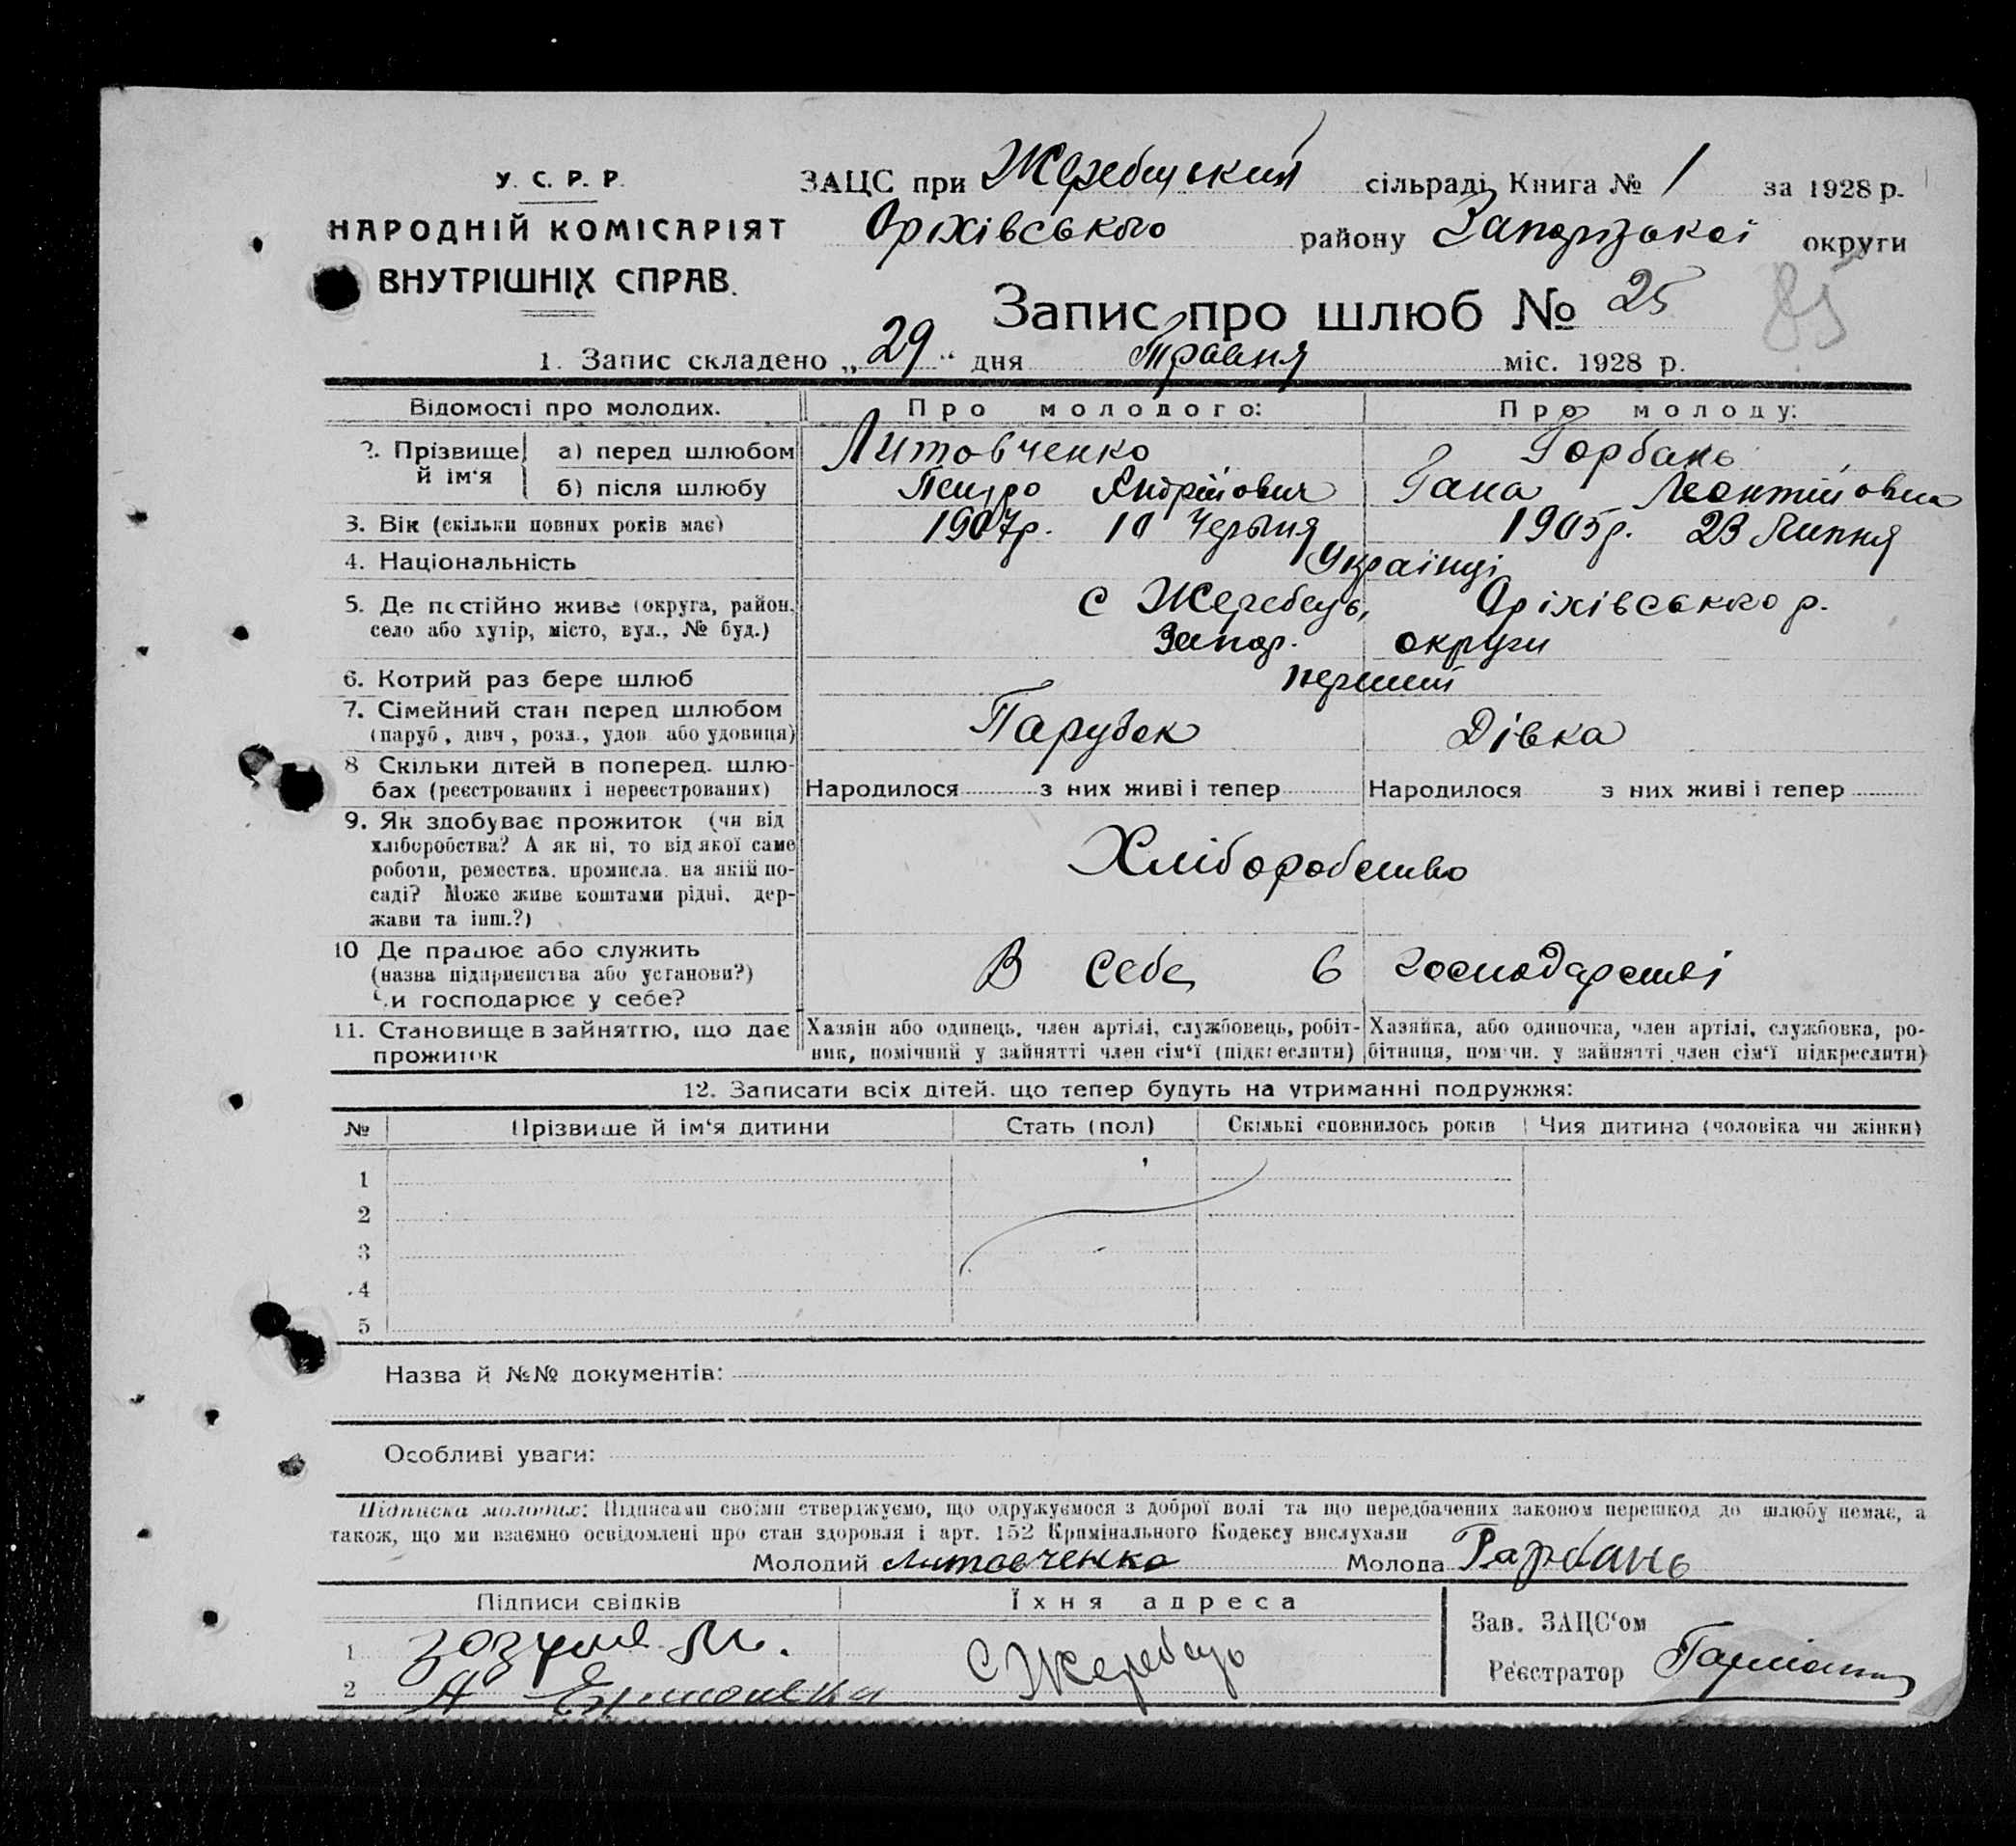 У. С. Р. Р.
НАРОДНІЙ КОМІСАРІЯТ
ВНУТРІШНІХ СПРАВ.
ЗАЦС при Жеребецький сільраді, Книга № 1 за 1928 р.
Оріхівського району Запорізької округи
Запис про шлюб № 25
85
1. Запис складено „29“ дня Травня міс. 1928 р.
Відомості про молодих. Про молодого: Про молоду:
2. Прізвище й ім‘я а) перед шлюбом Литовченко Горбань
б) після шлюбу Петро Андрійович Гана Леонтійовна
3. Вік (скільки повних років має) 1907р. 10 Червня 1905р. 23 Липня
4. Національність Українці
5. Де постійно живе (округа, район, с Жеребець, Оріхівського р.
село або хутір, місто, вул., № буд.) Запор. округи
6. Котрий раз бере шлюб перший
7. Сімейний стан перед шлюбом Парубок Дівка
(паруб., дівч., розл., удов. або удовиця)
8 Скільки дітей в поперед. шлю-
бах (реєстрованих і нереєстрованих) Народилося з них живі і тепер Народилося з них живі і тепер
9. Як здобуває прожиток (чи від
хліборобства? А як ні, то від якої саме
роботи, ремества, промисла, на якій по-
саді? Може живе коштами рідні, дер-
жави та інш.?)
Хліборобство
10 Де працює або служить
(назва підприємства або установи?)
Чи господарює у себе?
В себе в господарстві
11. Становище в зайняттю, що дає
прожиток
Хазяїн або одинець, член артілі, службовець, робіт-
ник, помічний у зайнятті член сім‘ї (підкреслити)
Хазяйка, або одиночка, член артілі, службовка, ро-
бітниця, помічн. у зайнятті член сім‘ї підкреслити)
12. Записати всіх дітей, що тепер будуть на утриманні подружжя:
№ Прізвище й ім‘я дитини Стать (пол) Скількі сповнилось років Чия дитина (чоловіка чи жінки)
1
2
3
4
5
Назва й №№ документів:
Особливі уваги:
Підписка молодих: Підписами своїми стверджуємо, що одружуємося з доброї волі та що передбачених законом перешкод до шлюбу немає, а
також, що ми взаємно освідомлені про стан здоровля і арт. 152 Кримінального Кодексу вислухали
Молодий Литовченко Молода Гарбань
Підписи свідків Їхня адреса
1 Зозуля М.
2 А
с Жеребець
Зав. ЗАЦС‘ом
Реєстратор